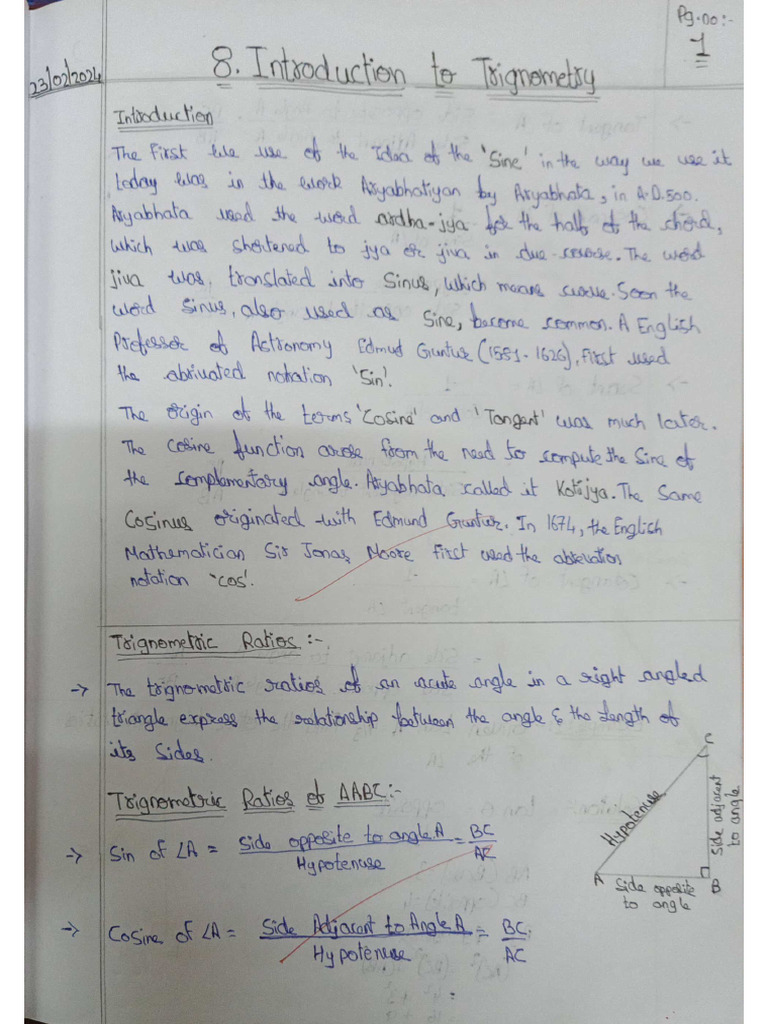 Pg.no:-
1
23/02/2024
8. Introduction to Trignometry
Introduction
The first use of the Idea of the 'Sine' in the way we use it
today was in the work Aryabhatiyan by Aryabhata, in A.D.500.
Aryabhata used the word ardha-jya for the half of the chord,
which was shortened to jya or jiva in due-course. The word
jiva was, translated into Sinus, which means curve. Soon the
word Sinus, also used as Sine, become common. A English
Professor of Astronomy Edmud Guntur (1581-1626), first used
the abrivated notation 'Sin'.
The origin of the terms 'Cosine' and 'Tangent' was much later.
The cosine function arose from the need to compute the Sine of
the complamentory angle. Aryabhata called it Kotijya. The Same
Cosinus originated with Edmund Guntur. In 1674, the English
Mathematician Sir Jonas Moore first used the abrevation
notation 'cos'.
Trignometric Ratios :-
-> The trignometric ratios of an acute angle in a right angled
triangle express the relationship between the angle & the length of
its Sides.
Trignometric Ratios of AABC:-
-> Sin of ∠A = Side opposite to angle A / Hypotenuse = BC / AC
-> Cosine of ∠A = Side Adjacent to Angle A / Hypotenuse = BC / AC
C
Hypotenuse
Side adjacent
to angle
A
B
Side opposite
to angle